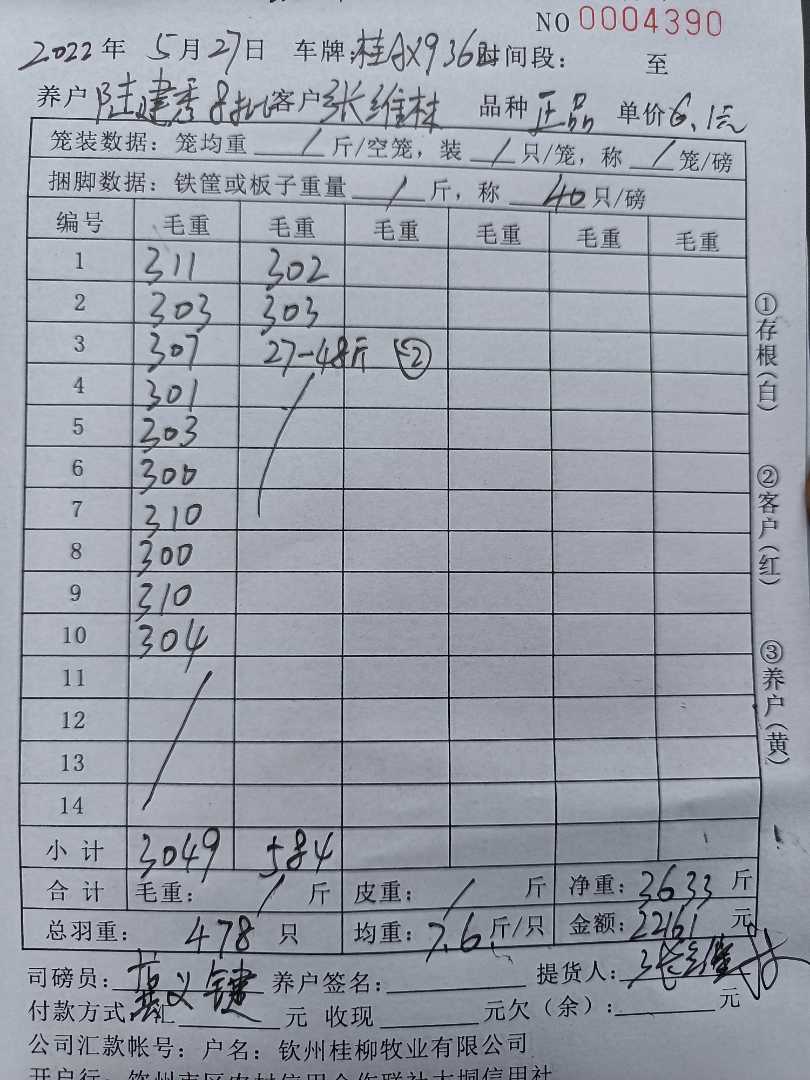 NO 0004390
2022年 5月27日 车牌:桂AX936 时间段: 至
养户 陆建秀8批 客户 张维林 品种 正品 单价 6.1元
笼装数据: 笼均重 / 斤/空笼, 装 / 只/笼, 称 / 笼/磅
捆脚数据: 铁筐或板子重量 / 斤, 称 40 只/磅
编号 毛重 毛重 毛重 毛重 毛重 毛重
1 311 302
2 303 303
3 307 27-48斤 ②
4 301
5 303
6 300
7 310
8 300
9 310
10 304
11
12
13
14
小计 3049 584
合计 毛重: / 斤 皮重: / 斤 净重: 3633 斤
总羽重: 478 只 均重: 7.6 斤/只 金额: 22161 元
司磅员: 义键 养户签名: 提货人: 张
付款方式: 汇 元 收现 元欠(余): 元
公司汇款帐号: 户名: 钦州桂柳牧业有限公司
开户行: 钦州市区农村信用合作联社大垌信用社
①存根(白)
②客户(红)
③养户(黄)